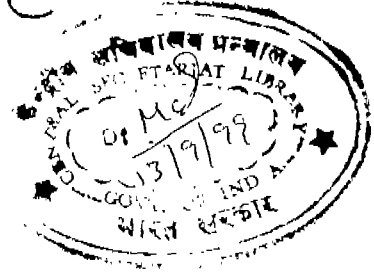 केन्द्रीय सचिवालय ग्रन्थालय
CENTRAL SECRETARIAT LIBRARY
13/9/99
GOVT. OF INDIA
भारत सरकार